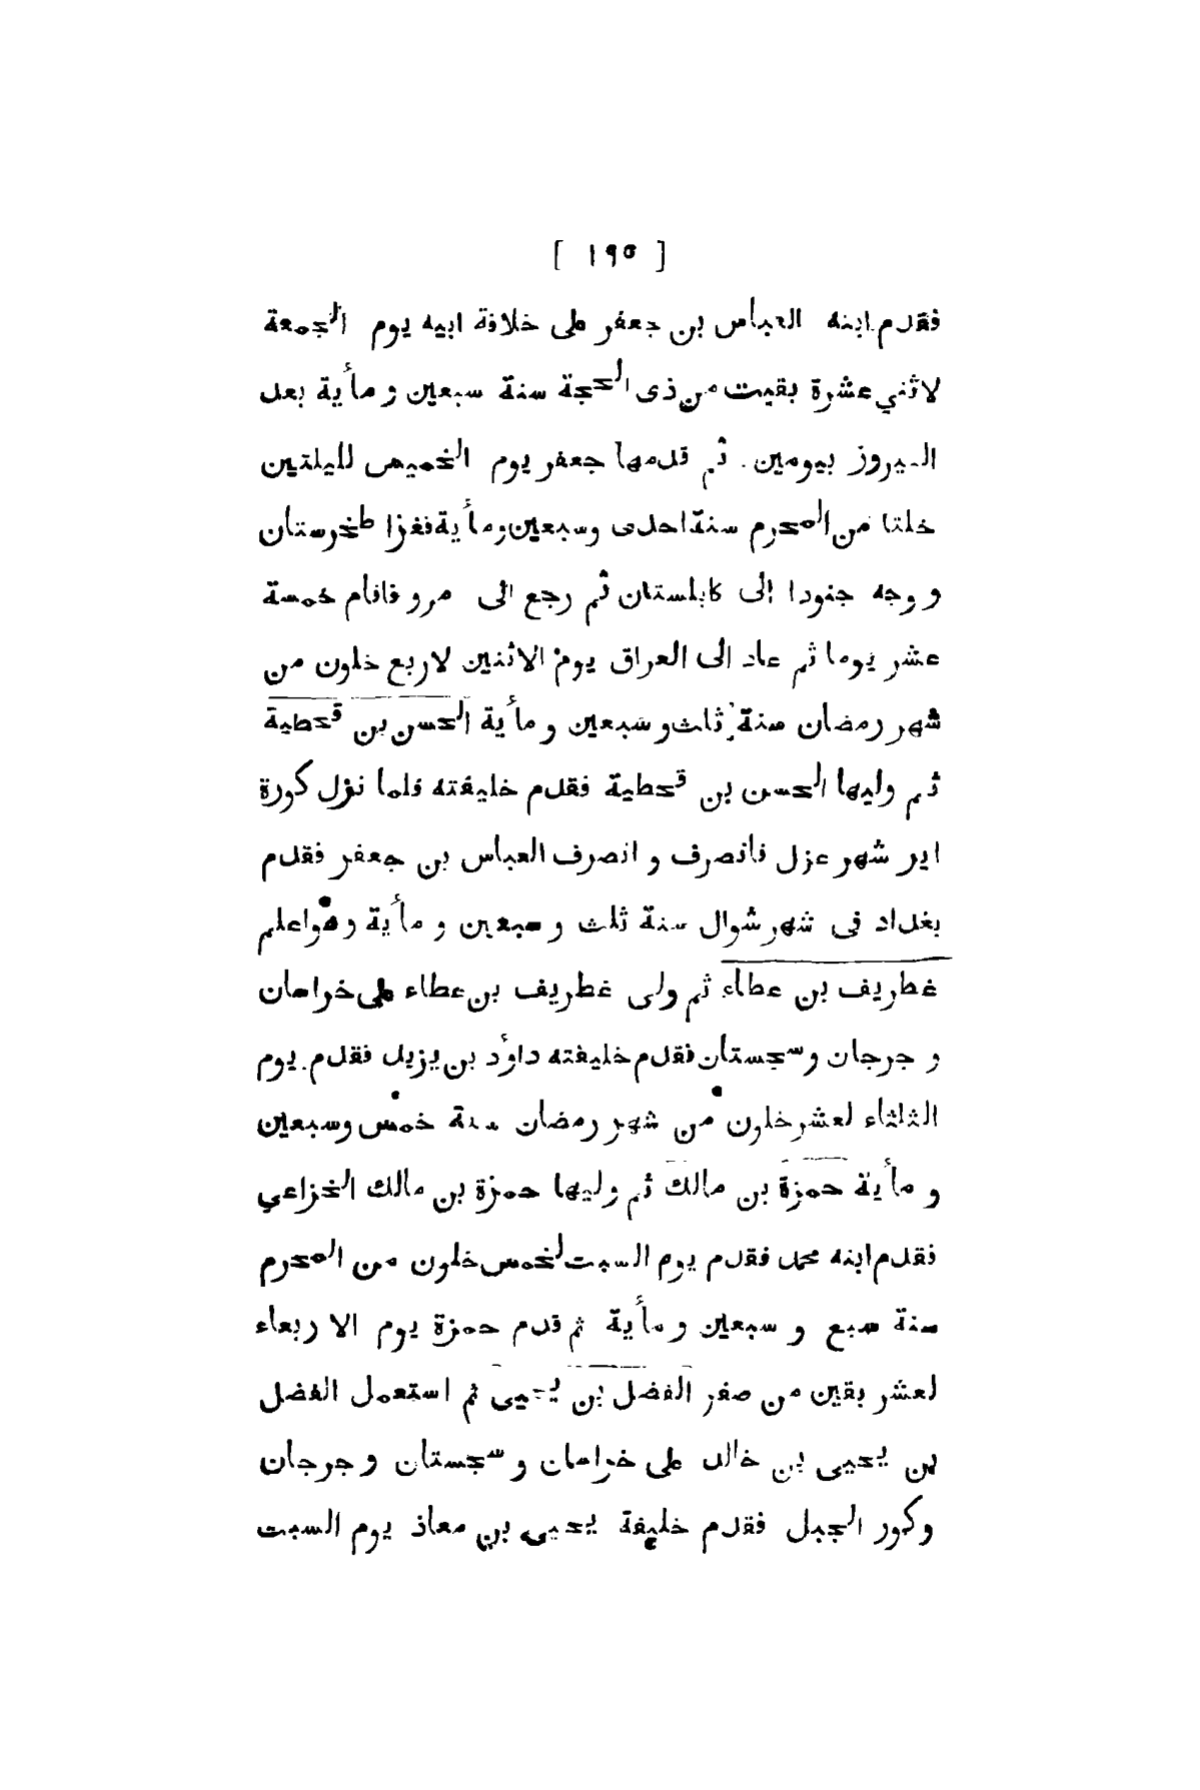 [ ١٩٥ ]
فقدم ابنه العباس بن جعفر على خلافة ابيه يوم الجمعة
لاثني عشرة بقيت من ذى الحجة سنة سبعين و مأية بعد
النيروز بيومين . ثم قدمها جعفر يوم الخميس لليلتين
خلتا من المحرم سنة احدى وسبعين و مأية فغزا طخرستان
و وجه جنودا الى كابلستان ثم رجع الى مرو فاقام خمسة
عشر يوما ثم عاد الى العراق يوم الاثنين لاربع خلون من
شهر رمضان سنة ثلث و سبعين و مأية الحسن بن قحطبة
ثم وليها الحسن بن قحطبة فقدم خليفته فلما نزل كورة
ابر شهر عزل فانصرف و انصرف العباس بن جعفر فقدم
بغداد فى شهر شوال سنة ثلث و سبعين و مأية و هواعلم
غطريف بن عطاء ثم ولى غطريف بن عطاء على خراسان
و جرجان و سجستان فقدم خليفته داؤد بن يزيد فقدم . يوم
الثلثاء لعشر خلون من شهر رمضان سنة خمس وسبعين
و مأية حمزة بن مالك ثم وليها حمزة بن مالك الخزاعي
فقدم ابنه محمد فقدم يوم السبت لخمس خلون من المحرم
سنة سبع و سبعين و مأية ثم قدم حمزة يوم الا ربعاء
لعشر بقين من صفر الفضل بن يحيى ثم استعمل الفضل
بن يحيى بن خالد على خراسان و سجستان و جرجان
وكور الجبل فقدم خليفة يحيى بن معاذ يوم السبت